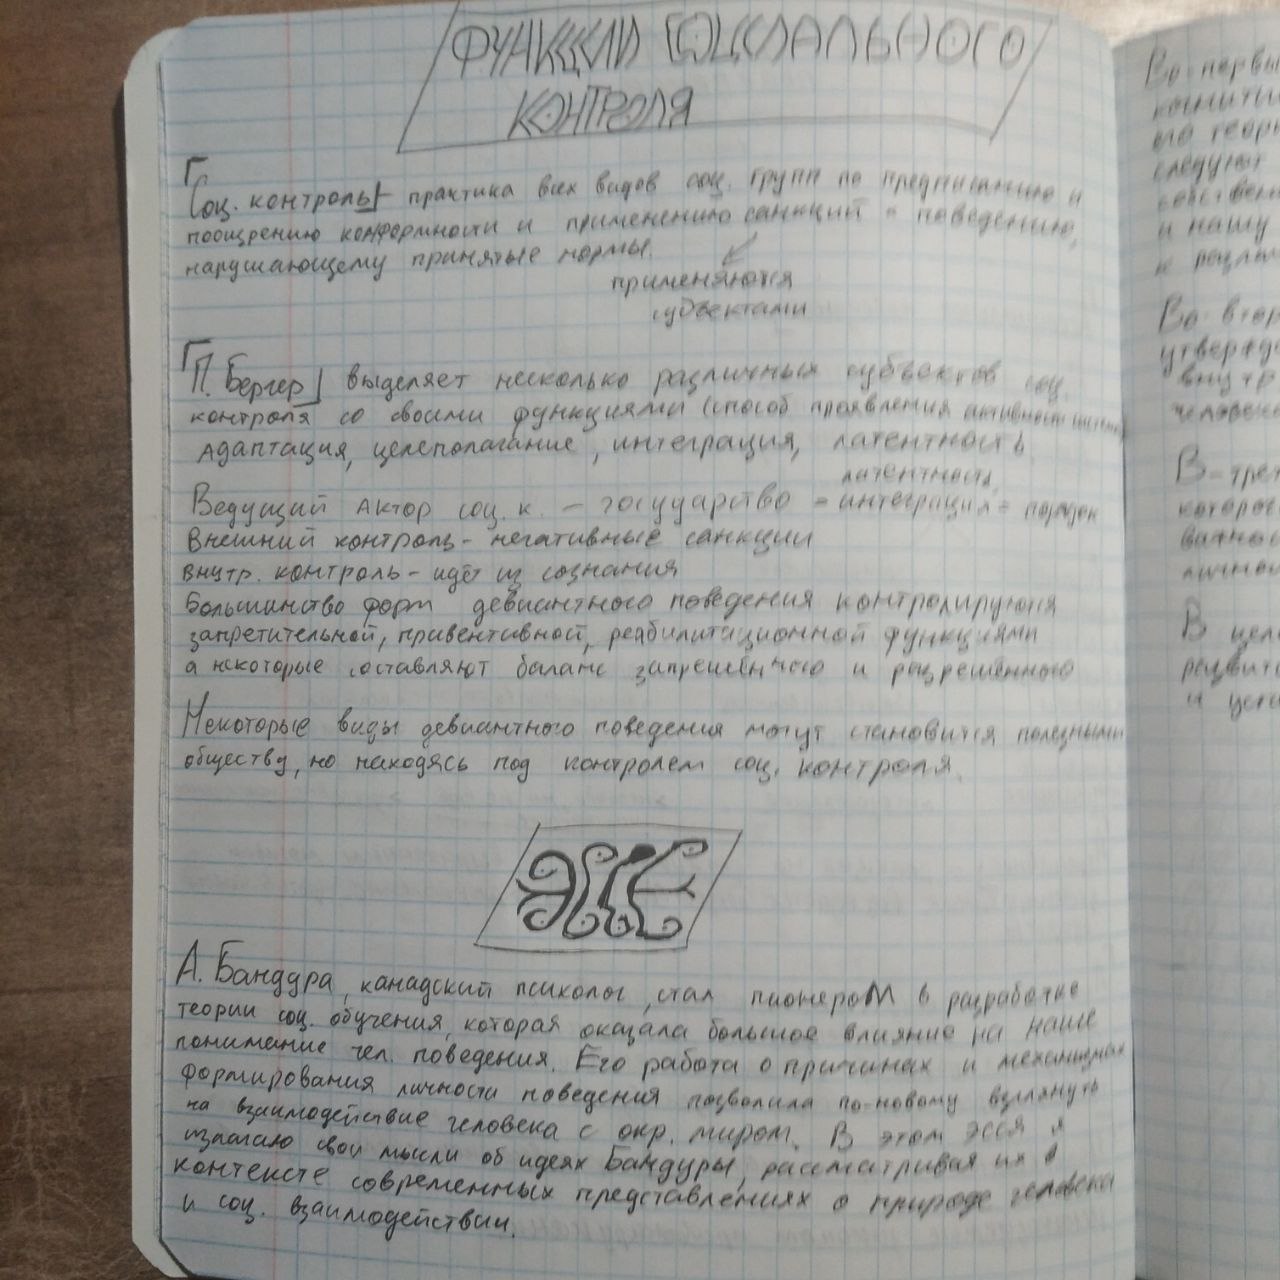 ФУНКЦИИ СОЦИАЛЬНОГО
КОНТРОЛЯ
Соц. контроль - практика всех видов соц. групп по предписанию и
поощрению конформности и применению санкций к поведению,
нарушающему принятые нормы.
применяются
субъектами
П. Бергер выделяет несколько различных субъектов соц.
контроля со своими функциями (способ проявления активности системы
Адаптация, целеполагание, интеграция, латентность
латентность
Ведущий актор соц. к. - государство = интеграция = порядок
Внешний контроль - негативные санкции
внутр. контроль - идёт из сознания
Большинство форм девиантного поведения контролируются
запретительной, привентивной, реабилитационной функциями
а некоторые составляют баланс запрещённого и разрешённого
Некоторые виды девиантного поведения могут становится полезными
обществу, но находясь под контролем соц. контроля.
ЭССЕ
А. Бандура, канадский психолог, стал пионером в разработке
теории соц. обучения, которая оказала большое влияние на наше
понимание чел. поведения. Его работа о причинах и механизмах
формирования личности поведения позволила по-новому взглянуть
на взаимодействие человека с окр. миром. В этом эсся я
излагаю свои мысли об идеях Бандуры, рассматривая их в
контексте современных представлениях о природе человека
и соц. взаимодействии.
Во-первы
когнитив
его теори
следуют
собствен
и нашу
Во-втор
утвержда
внутр
человек
В-трет
которо
важно
личнос
В цело
развит
и цен